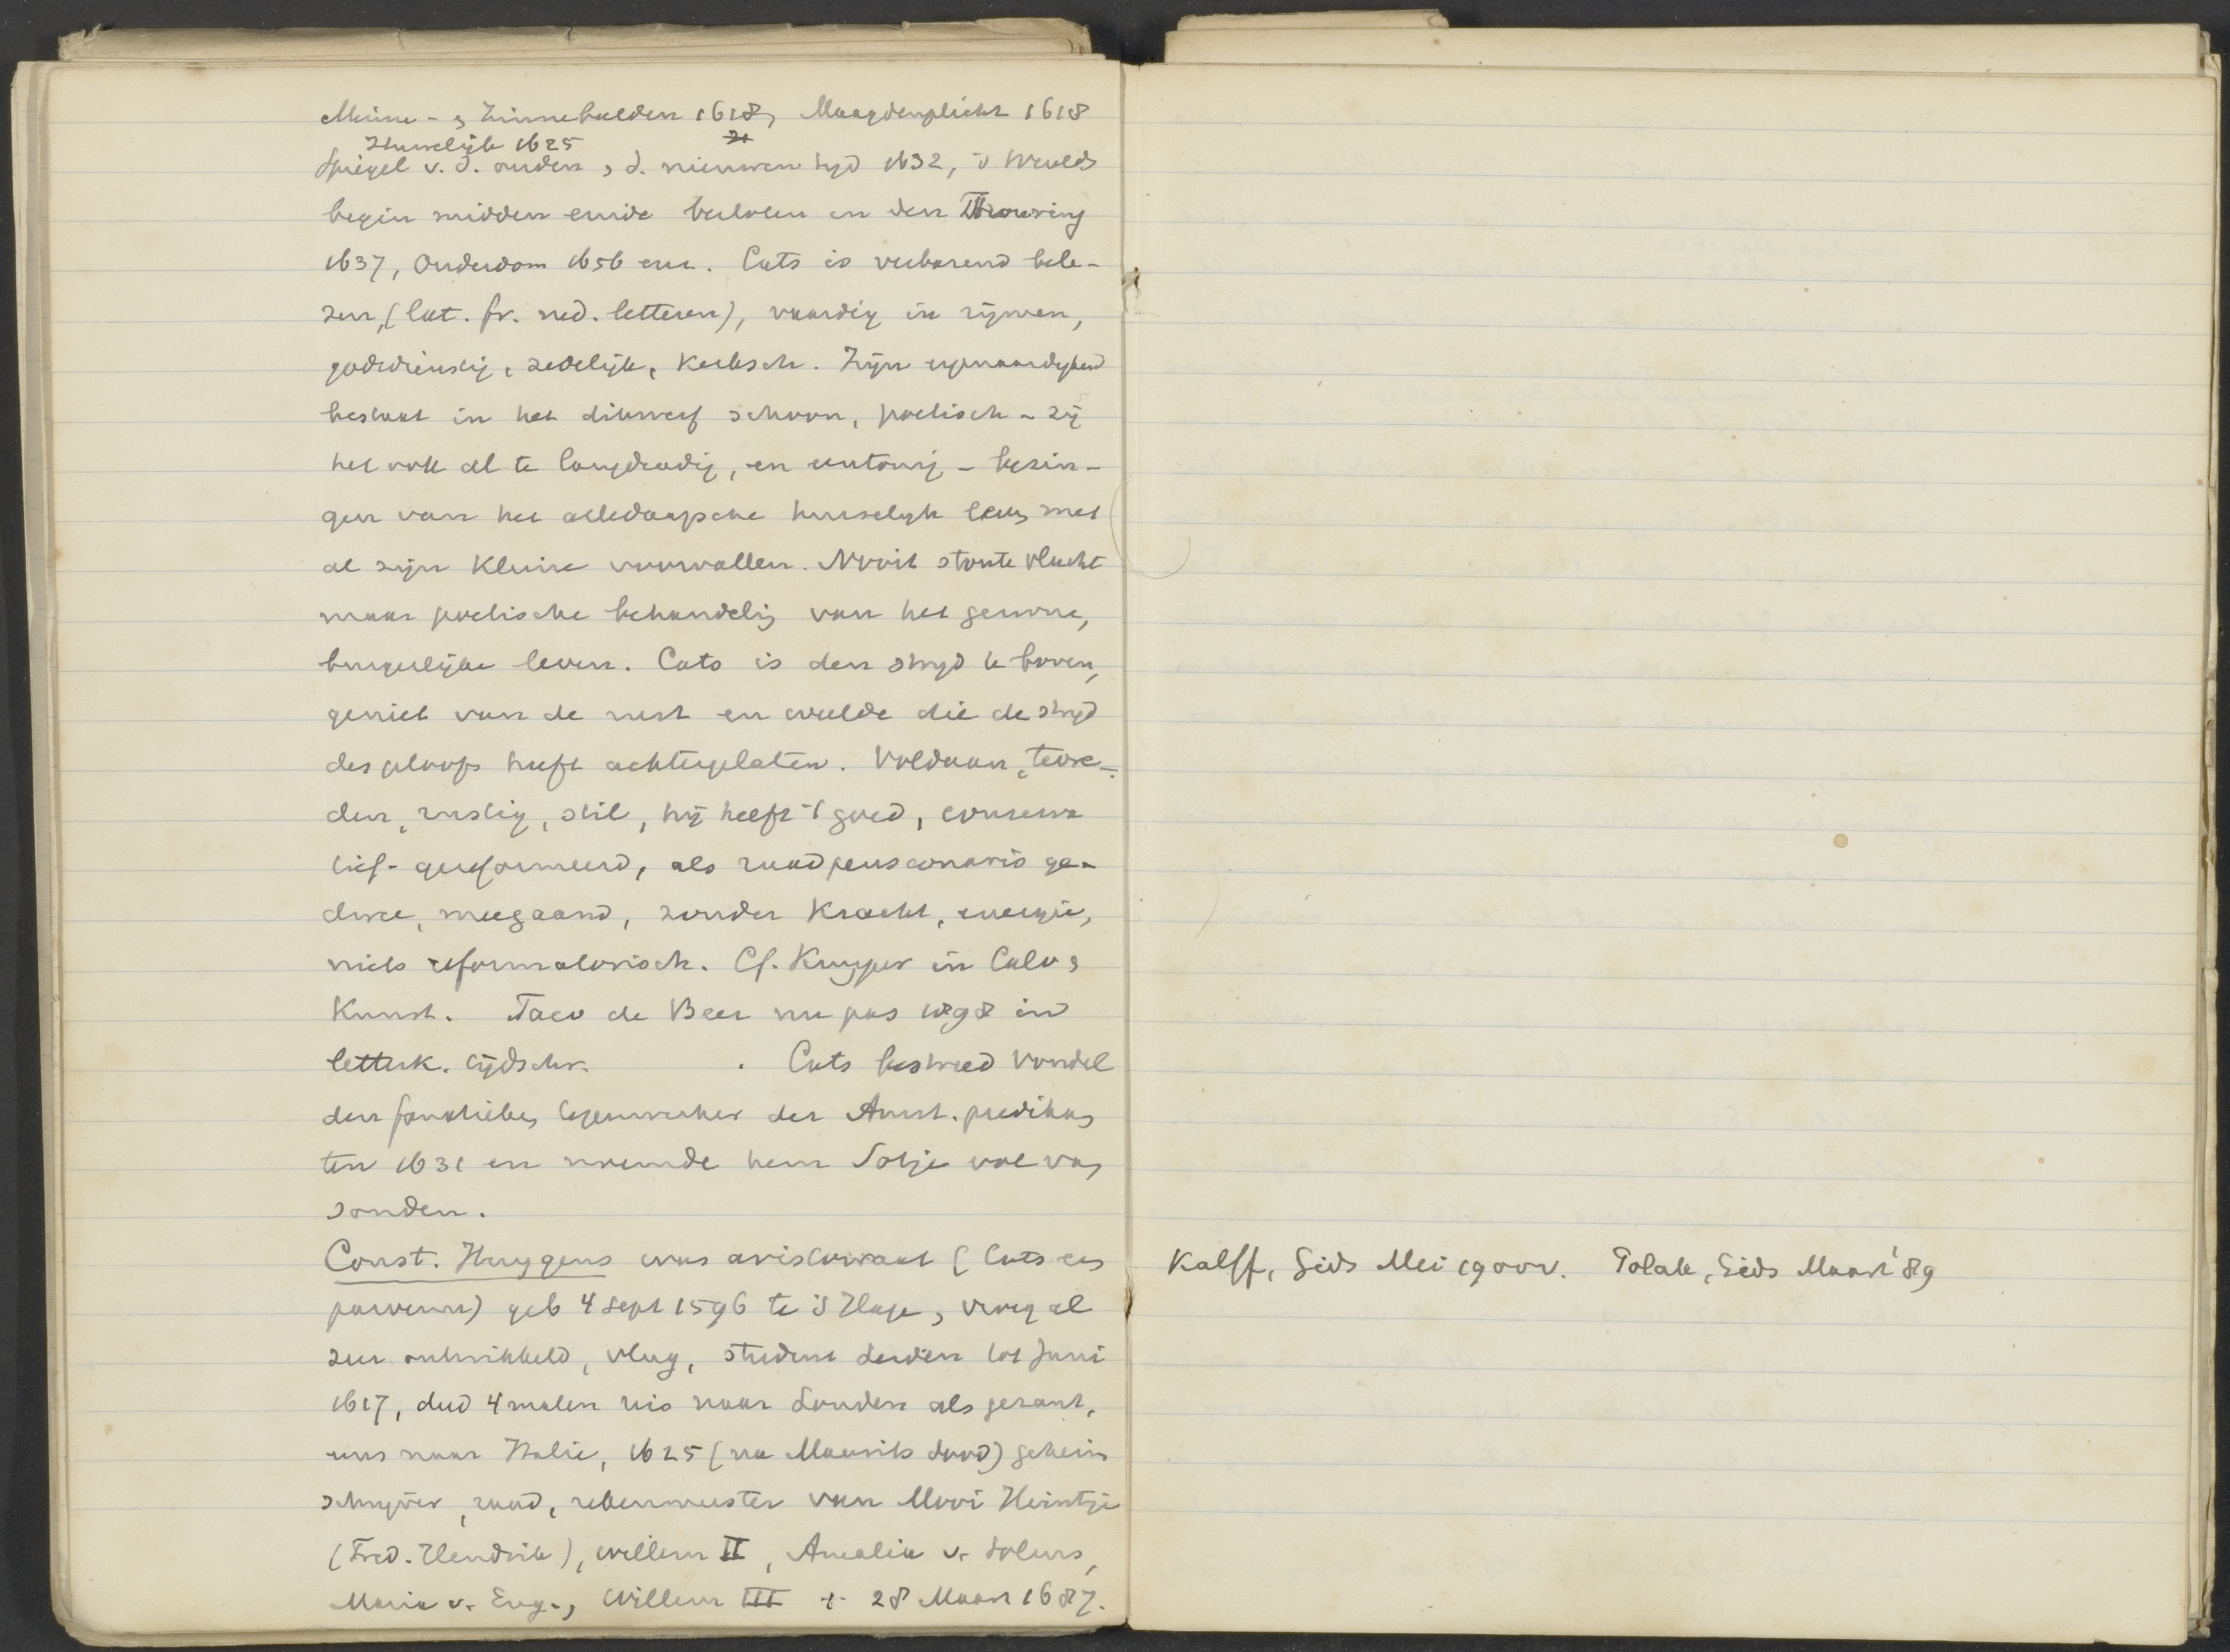 Minne- & Zinnebeelden 1618, Maagdenplicht 1618
Huwelijk 1625
Spiegel v. d. ouden & d. nieuwen tyd 1632, 's Werelds
begin midden einde besloten in den Trouwring
1637, Ouderdom 1656 enz. Cats is verbazend bele-
zen, (lat. fr. ned. letteren), vaardig in rijmen,
godsdienstig, zedelijk, Kerksch. Zijn eigenaardigheid
bestaat in het dikwerf schoon, poetisch - zij
het ook al te langdradig, en eentonig - bezin-
gen van het alledaagsche huiselyk leven met
al zijn Kleine voorvallen. Nooit stoute vlucht
maar poetische behandelig van het gewone,
burgerlijke leven. Cats is den stryd te boven,
geniet van de rust en weelde die de stryd
des geloofs heeft achtergelaten. Voldaan, tevre-
den, rustig, stil, hij heeft 't goed, conserva
tief-gereformeerd, als raadpensionaris ge-
dwee, meegaand, zonder Kracht, energie,
niets reformatorisch. Cf. Kuyper in Calv &
Kunst. Taco de Beer nu pas 1898 in
letterk. tijdschr. . Cats bestreed Vondel
den fanatieken tegenwerker der Amst. predikan
ten 1631 en noemde hem Sotje vol van
sonden.
Const. Huygens was aristocraat (Cats een
parvenu) geb 4 Sept 1596 te 's Hage, vroeg al
zeer ontwikkeld, vlug, student Leiden tot Juni
1617, deed 4 malen reis naar Londen als gezant,
eens naar Italie, 1625 (na Maurits dood) geheim
schryver, raad, rekenmeester van Mooi Heintje
(Fred. Hendrik), Willem II, Amalia v. Solms,
Maria v. Eng., Willem III + 28 Maart 1687.
Kalff, Gids Mei 1900. Polak, Gids Maart '89